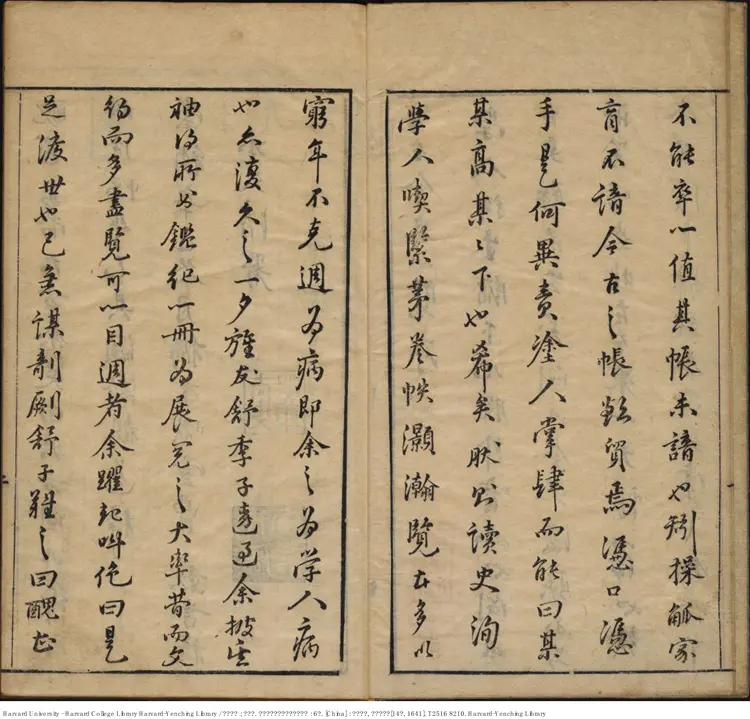 不能卒以值其帳未諳也矧操觚家
育不諳今古之帳欵貿焉憑口憑
手是何異責塗人掌肆而能曰某
某高某々下也希矣肰則讀史洵
學人喫緊苐卷帙灝瀚覽者多以
窮年不克週為病即余之為学人病
也亦復久之一夕旋友舒季子過余披
袖得所出鑑紀一冊為展覓之大率昔而文
約而多盡覽可以目週者余躍起叫絕曰是
足渡世也已亟謀剞劂舒子難之曰醜
Harvard University - Harvard College Library Harvard-Yenching Library / ???? ; ???. ????????????? : 6?. [China] : ????, ?????[14?, 1641]. T2516 8210. Harvard-Yenching Library